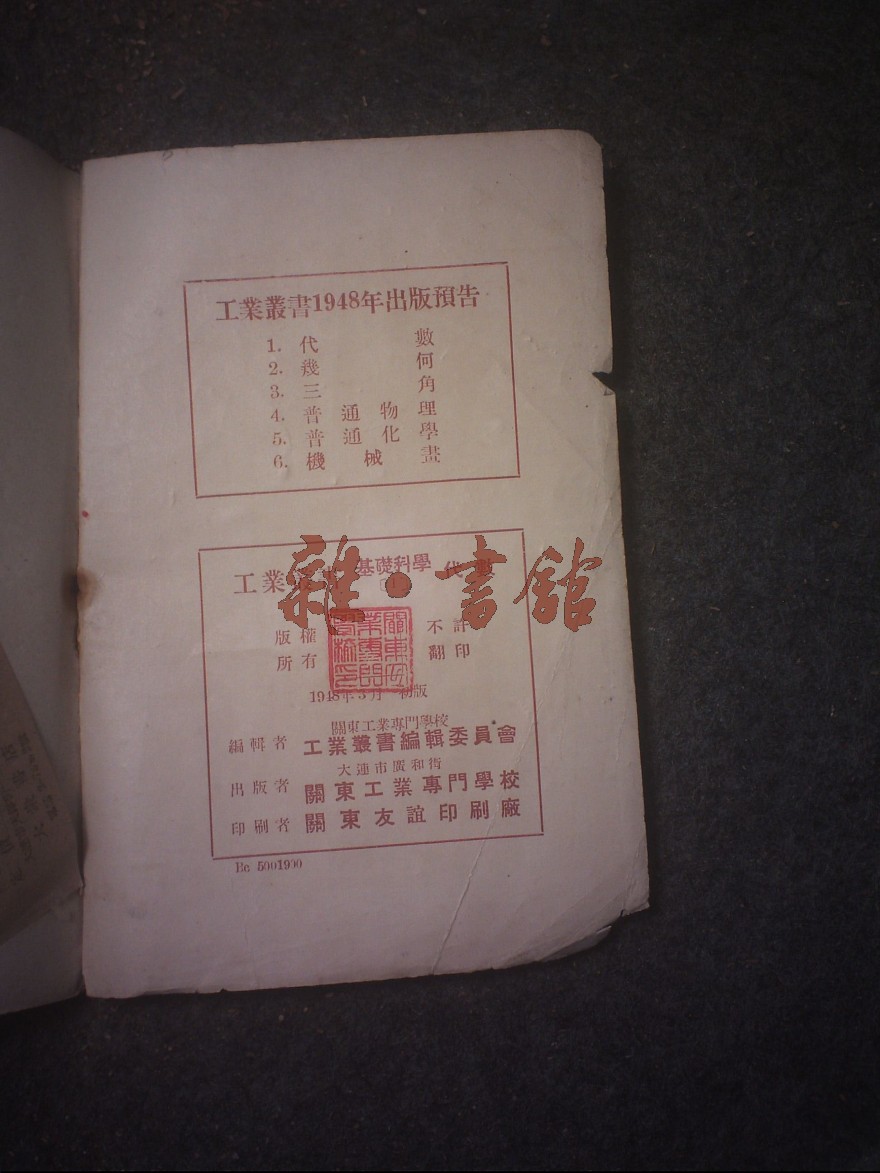 工業叢書1948年出版預告
1. 代數
2. 幾何
3. 三角
4. 普通物理
5. 普通化學
6. 機械畫
工業 基礎科學 代
雜·書館
版權 不許
所有 翻印
年3月 初版
關東工業專門學校
編輯者 工業叢書編輯委員會
大連市 和街
出版者 關東工業專門學校
印刷者 關東友誼印刷廠
Bc 5001900